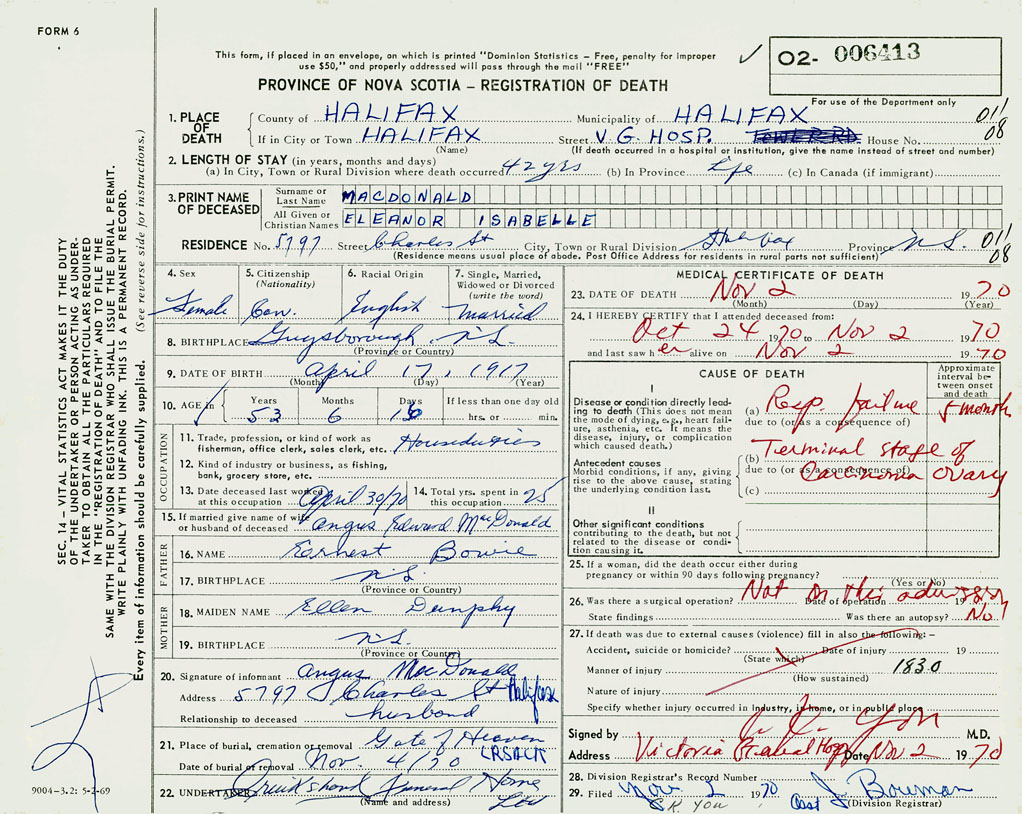 FORM 6
This form, if placed in an envelope, on which is printed "Dominion Statistics – Free, penalty for improper
use $50," and properly addressed will pass through the mail "FREE"
✓ O2- 006413
For use of the Department only
PROVINCE OF NOVA SCOTIA – REGISTRATION OF DEATH
1. PLACE OF DEATH County of HALIFAX Municipality of HALIFAX 011
If in City or Town HALIFAX Street V.G. HOSP. House No. 08
(Name) (If death occurred in a hospital or institution, give the name instead of street and number)
2. LENGTH OF STAY (in years, months and days)
(a) In City, Town or Rural Division where death occurred 42 yrs (b) In Province Life (c) In Canada (if immigrant)
3. PRINT NAME OF DECEASED Surname or Last Name MACDONALD
All Given or Christian Names ELEANOR ISABELLE
RESIDENCE No. 5797 Street Charles St City, Town or Rural Division Halifax Province N.S. 011
(Residence means usual place of abode. Post Office Address for residents in rural parts not sufficient) 08
4. Sex 5. Citizenship (Nationality) 6. Racial Origin 7. Single, Married, Widowed or Divorced (write the word)
Female Can. English Married
8. BIRTHPLACE Guysborough, N.S.
(Province or Country)
9. DATE OF BIRTH April 17, 1917
(Month) (Day) (Year)
10. AGE in Years Months Days If less than one day
53 6 16 hrs. or min.
OCCUPATION
11. Trade, profession, or kind of work as fisherman, office clerk, sales clerk, etc. Houseduties
12. Kind of industry or business, as fishing, bank, grocery store, etc.
13. Date deceased last worked at this occupation April 30/70 14. Total yrs. spent in this occupation 25
15. If married give name of wife or husband of deceased Angus Edward MacDonald
FATHER
16. NAME Ernest Bowie
17. BIRTHPLACE N.S.
(Province or Country)
MOTHER
18. MAIDEN NAME Ellen Dunphy
19. BIRTHPLACE N.S.
(Province or Country)
20. Signature of informant Angus MacDonald
Address 5797 Charles St Halifax
Relationship to deceased husband
21. Place of burial, cremation or removal Gate of Heaven
LR SACK
Date of burial or removal Nov. 4/70
22. UNDERTAKER Cruikshank Funeral Home
(Name and address)
MEDICAL CERTIFICATE OF DEATH
23. DATE OF DEATH Nov 2 1970
(Month) (Day) (Year)
24. I HEREBY CERTIFY that I attended deceased from:
Oct 24 1970 to Nov 2 1970
and last saw her alive on Nov 2 1970
CAUSE OF DEATH
Approximate interval between onset and death
I
Disease or condition directly leading to death (This does not mean the mode of dying, e.g., heart failure, asthenia, etc. It means the disease, injury, or complication which caused death.)
(a) Resp. failure month
due to (or as a consequence of)
(b) Terminal stage of
due to (or as a consequence of) Carcinoma ovary
Antecedent causes
Morbid conditions, if any, giving rise to the above cause, stating the underlying condition last.
(c)
II
Other significant conditions contributing to the death, but not related to the disease or condition causing it.
25. If a woman, did the death occur either during pregnancy or within 90 days following pregnancy?
(Yes or No)
26. Was there a surgical operation? Not on this Date of operation 19
State findings Was there an autopsy? No
27. If death was due to external causes (violence) fill in also the following: –
Accident, suicide or homicide? Date of injury 19
(State which)
Manner of injury 1830
(How sustained)
Nature of injury
Specify whether injury occurred in industry, in home, or in public place
Signed by M.D.
Address Victoria General Hosp Date Nov 2 1970
28. Division Registrar's Record Number
29. Filed Nov. 2 1970 J. Bowman
R. YOU Asst (Division Registrar)
SEC. 14 – VITAL STATISTICS ACT MAKES IT THE DUTY
OF THE UNDERTAKER OR PERSON ACTING AS UNDER-
TAKER TO OBTAIN ALL THE PARTICULARS REQUIRED
IN THE "REGISTRATION OF DEATH" AND TO FILE THE
SAME WITH THE DIVISION REGISTRAR WHO SHALL ISSUE THE BURIAL PERMIT.
WRITE PLAINLY WITH UNFADING INK. THIS IS A PERMANENT RECORD.
Every item of information should be carefully supplied. (See reverse side for instructions.)
9004–3.2: 5-2-69